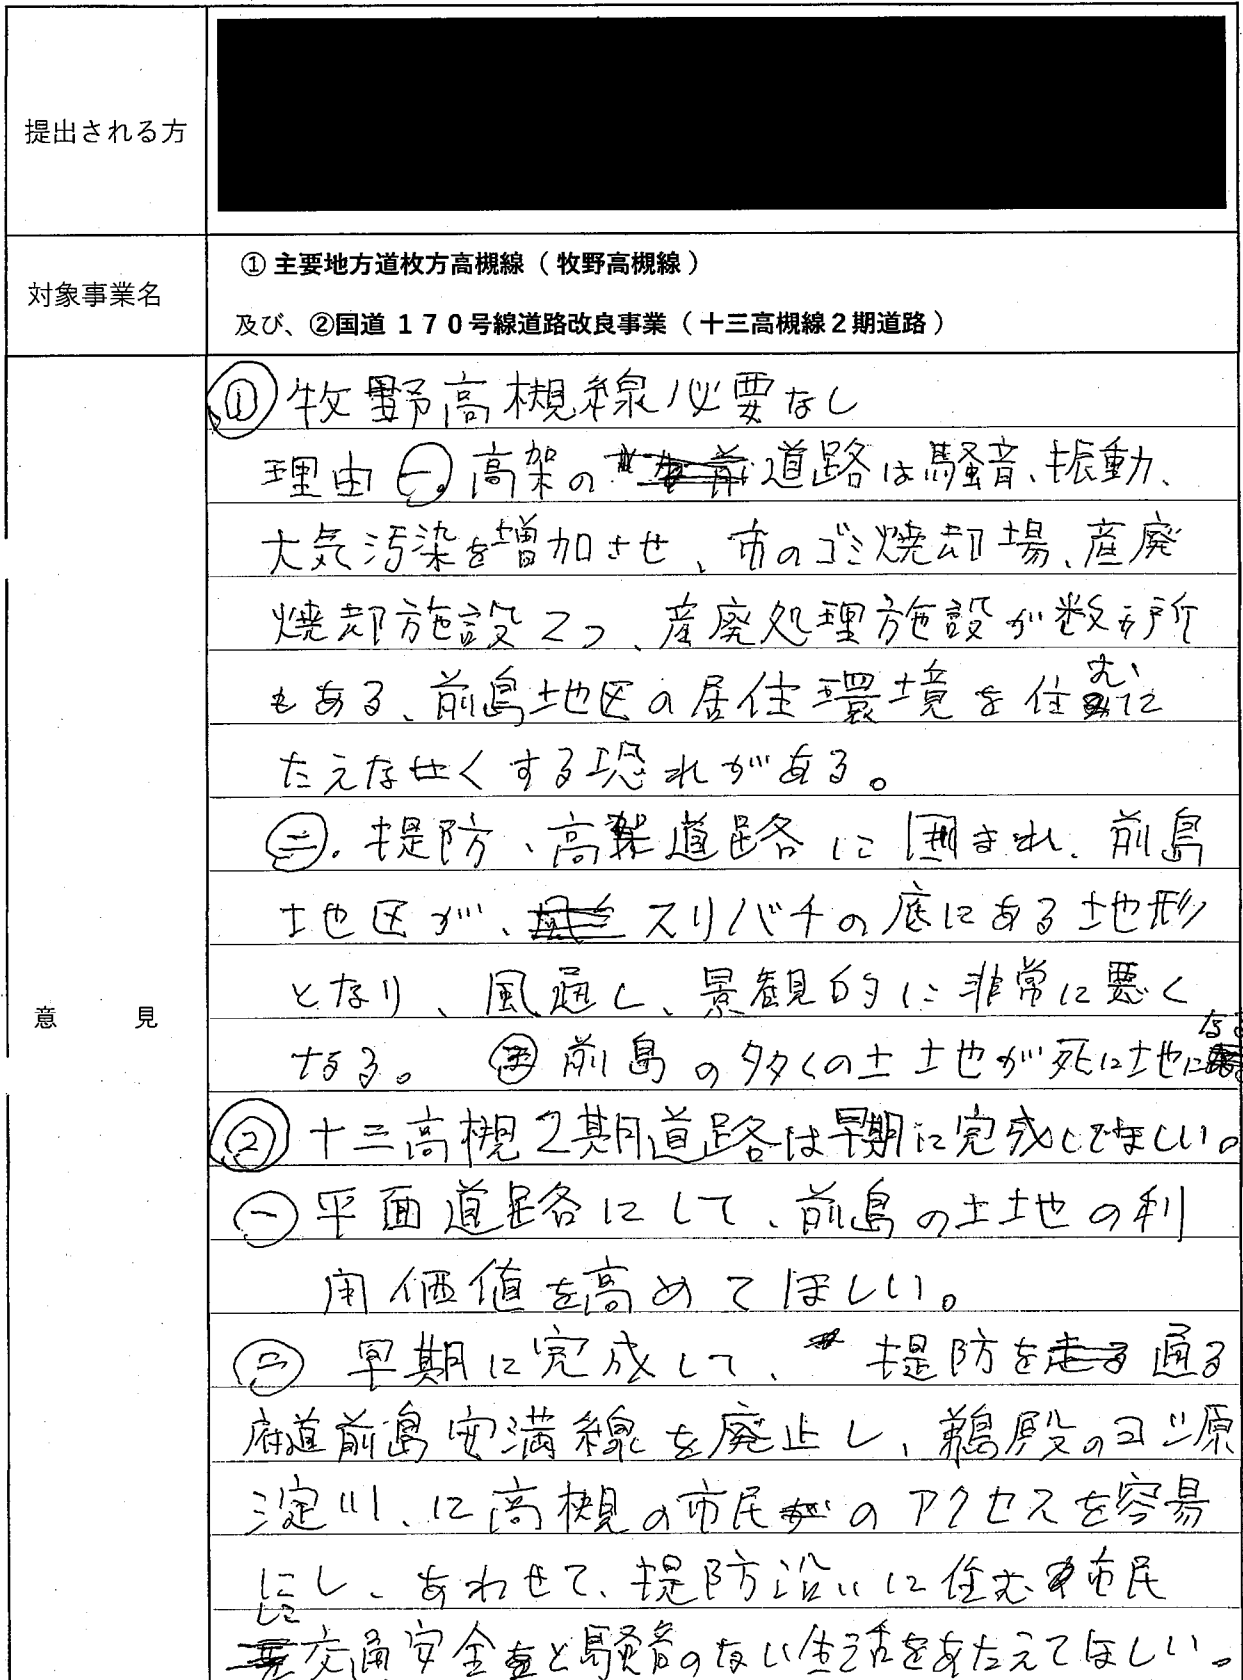 提出される方
対象事業名
① 主要地方道枚方高槻線（牧野高槻線）
及び、②国道１７０号線道路改良事業（十三高槻線２期道路）
意見
① 牧野高槻線必要なし
理由㊀高架の道路は騒音、振動、
大気汚染を増加させ、市のゴミ焼却場、産廃
焼却施設２つ、産廃処理施設が数ヶ所
もある、前島地区の居住環境を住むに
たえなくする恐れがある。
㊁. 堤防、高架道路に囲まれ、前島
地区が、スリバチの底にある地形
となり、風通し、景観的に非常に悪く
なる。 ㊂前島の多くの土地が死に地になる
② 十三高槻２期道路は早期に完成してほしい。
㊀ 平面道路にして、前島の土地の利
用価値を高めてほしい。
㊁ 早期に完成して、堤防を通る
府道前島安満線を廃止し、鵜殿のヨシ原
淀川、に高槻の市民のアクセスを容易
にし、あわせて、堤防沿いに住む市民
に交通安全と騒音のない生活をあたえてほしい。